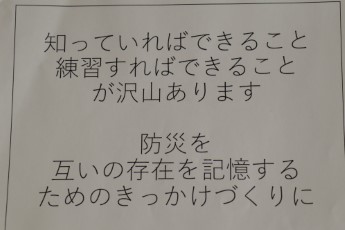 知っていればできること
練習すればできること
が沢山あります
防災を
互いの存在を記憶する
ためのきっかけづくりに